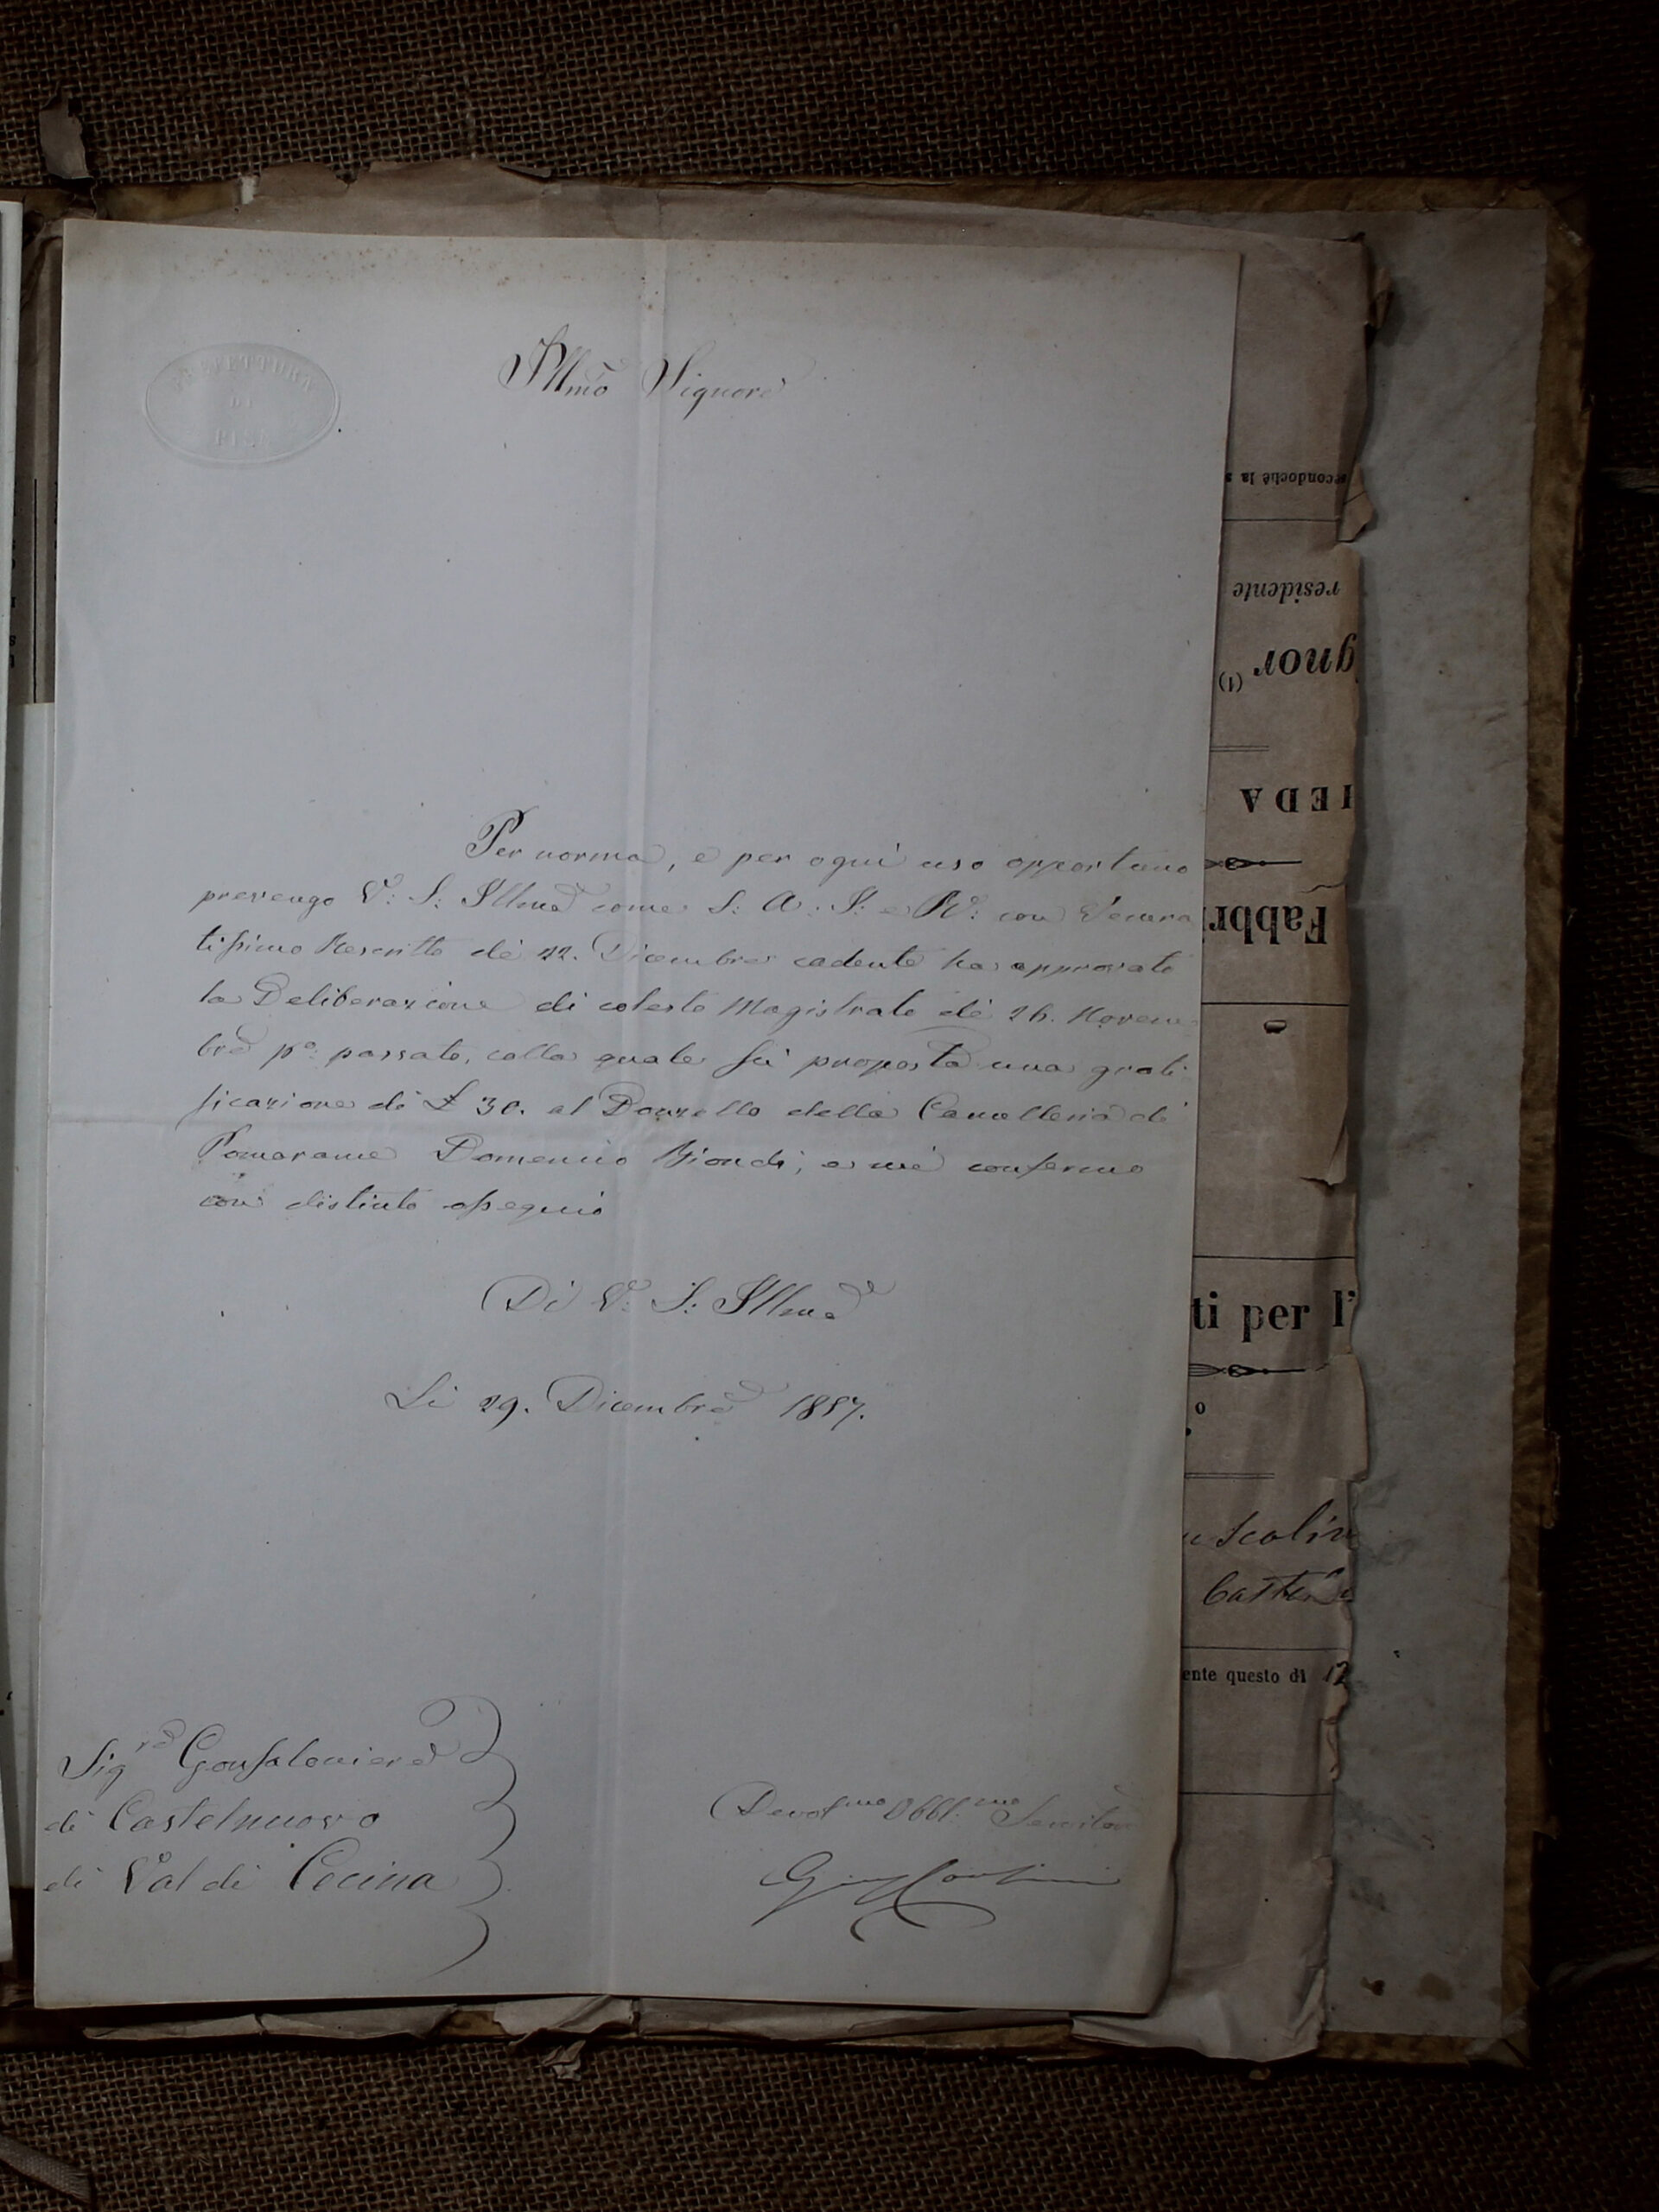 PREFETTURA
DI
PISA
Illmo Signore
Per norma, e per ogni uso opportuno
prevengo V: S: Illma come S: A: I: e R: con Venera
tissimo Rescritto de 22. Dicembre cadente ha approvato
la Deliberazione di cotesto Magistrato de 26. Novem
bre po: passato, colla quale fu proposta una grati
ficazione di £ 30. al Donzello della Cancelleria di
Pomarance Domenico Biondi; e mi confermo
con distinto ossequio
Di V: S: Illma
Li 29. Dicembre 1857.
Sigre Gonfaloniere
di Castelnuovo
di Val di Cecina
Devotmo Obbl:mo Servitore
secondochè la
residente
gnor (1)
IEDA
Fabbri
ti per l'
o
Scolin
ente questo dì 12